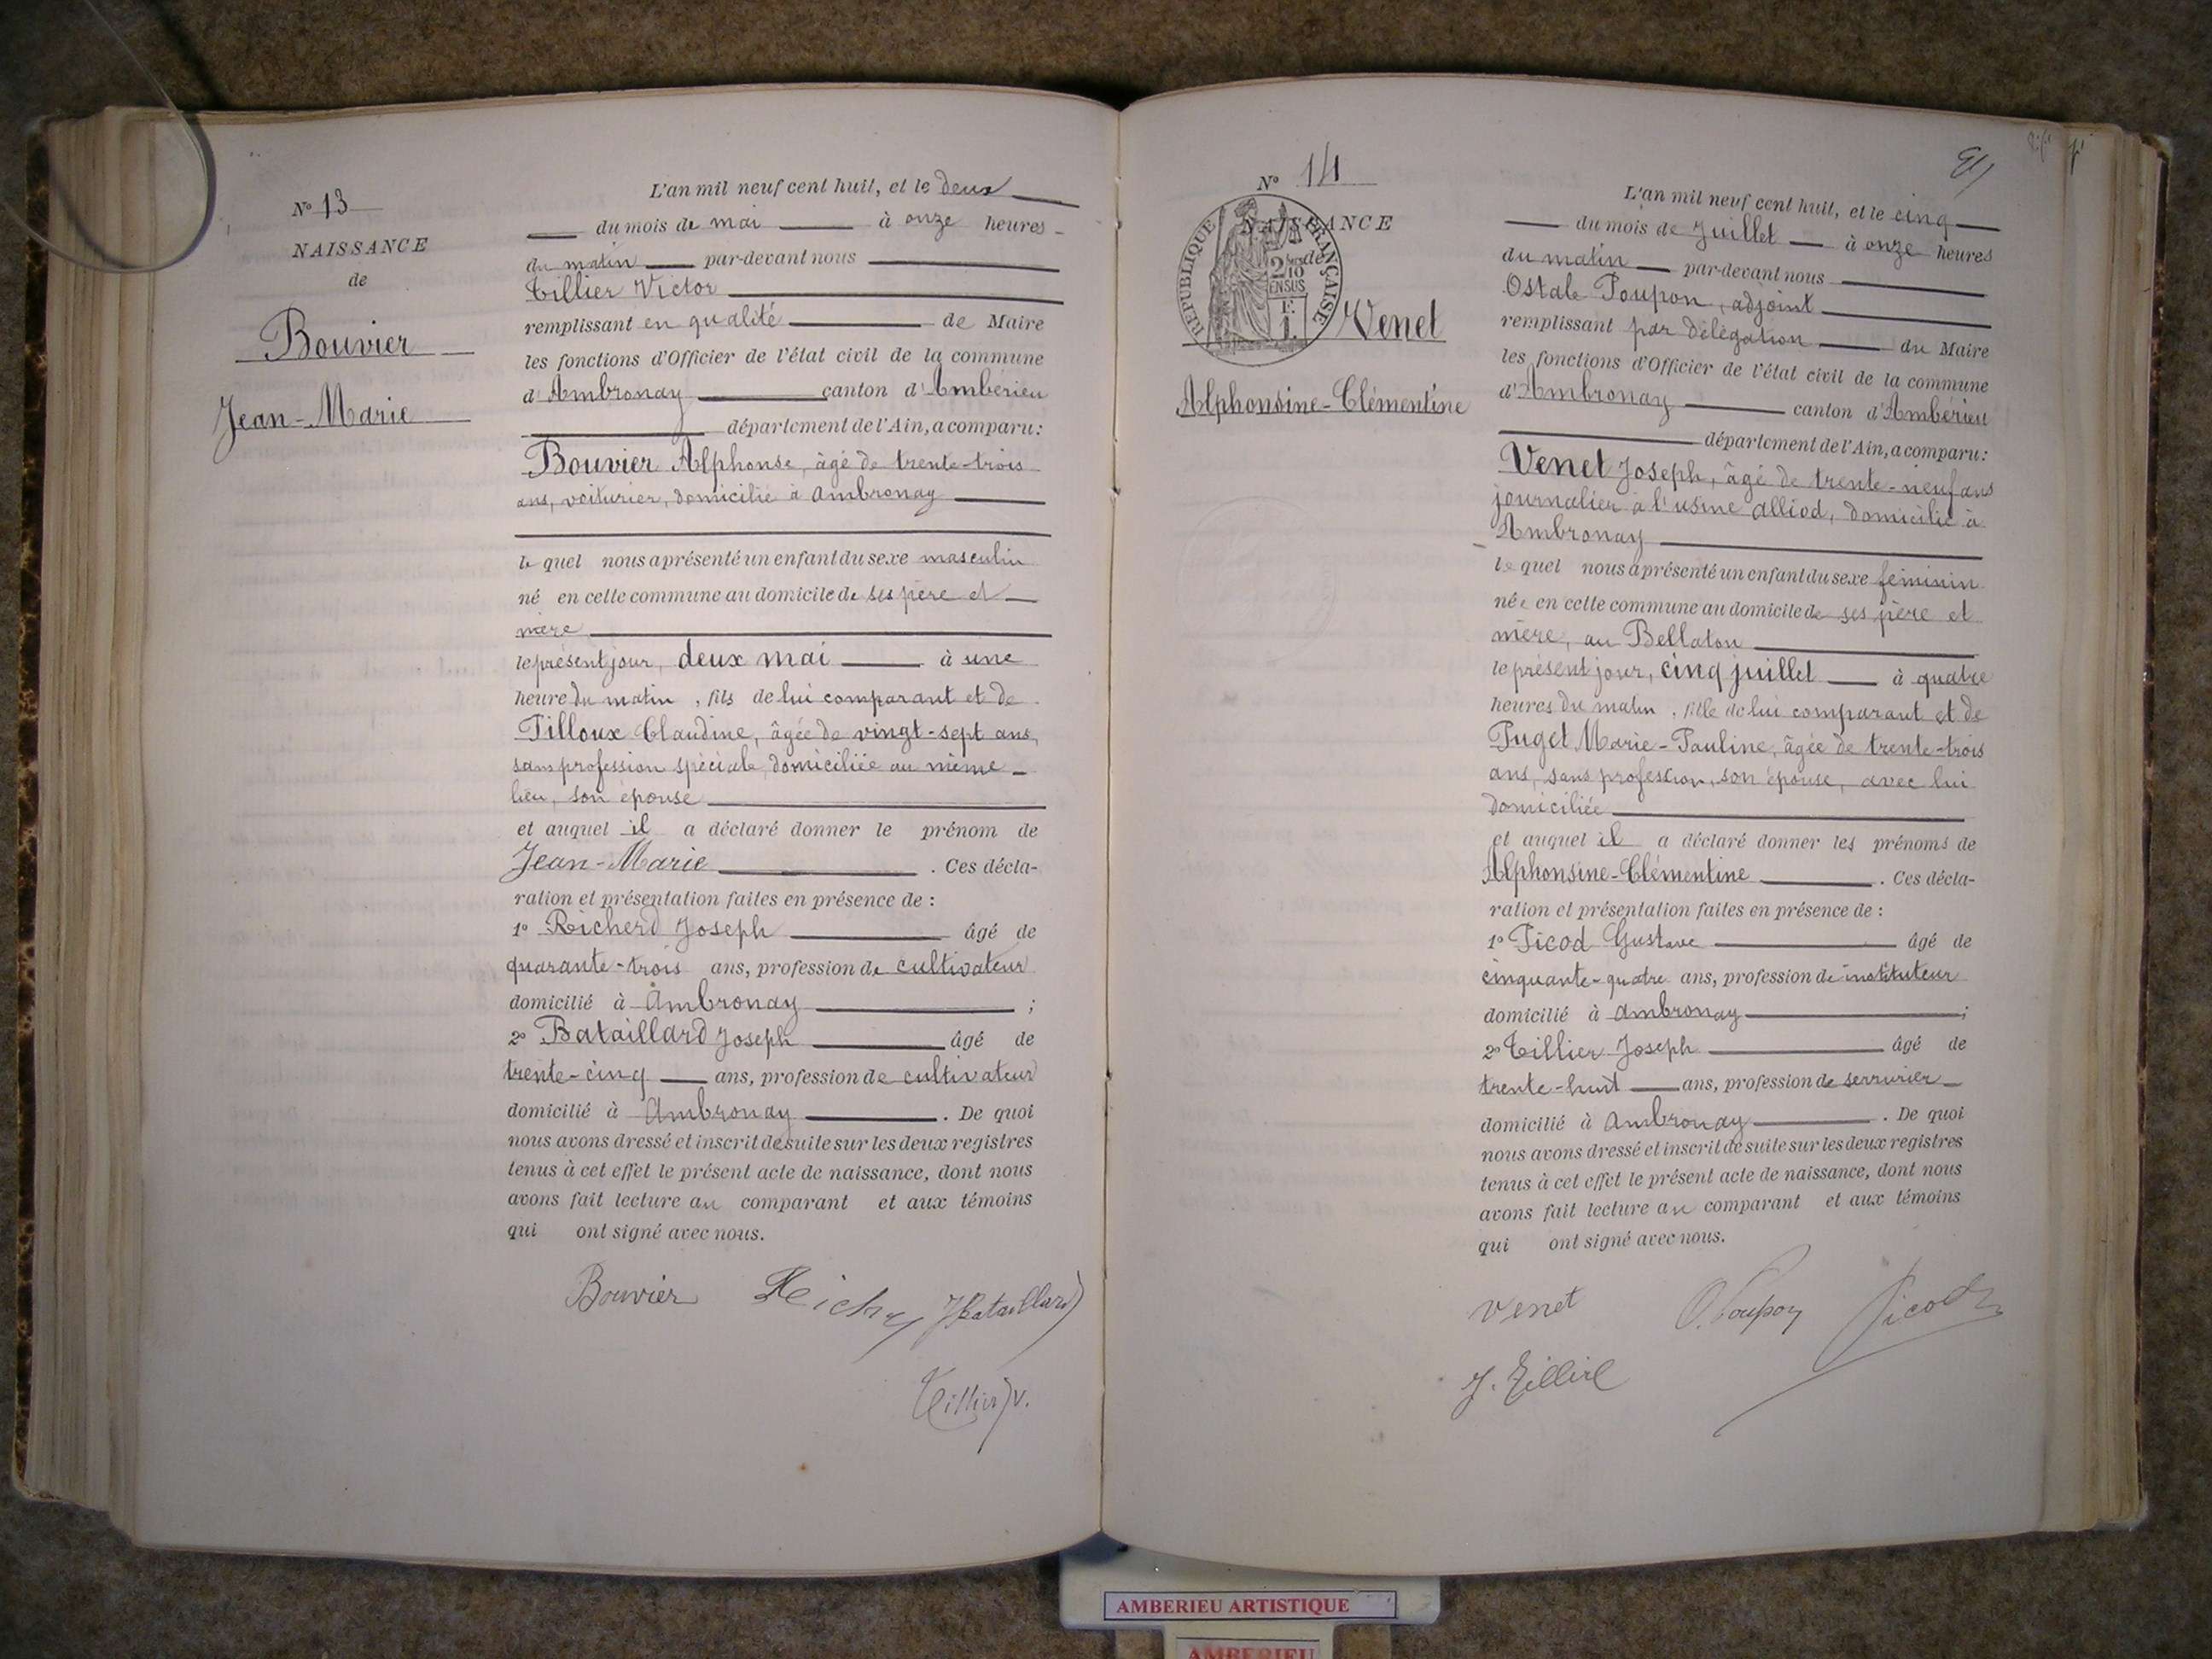 Nº 13
NAISSANCE
de
Bouvier
Jean-Marie
L'an mil neuf cent huit, et le deux
du mois de mai à onze heures
du matin par-devant nous
Tillier Victor
remplissant en qualité de Maire
les fonctions d'Officier de l'état civil de la commune
d'Ambronay canton d'Ambérieu
département de l'Ain, a comparu:
Bouvier Alphonse, âgé de trente-trois
ans, voiturier, domicilié à Ambronay
lequel nous a présenté un enfant du sexe masculin
né en cette commune au domicile de ses père et
mère
le présent jour, deux mai à une
heure du matin, fils de lui comparant et de
Tilloux Claudine, âgée de vingt-sept ans,
sans profession spéciale, domiciliée au même
lieu, son épouse
et auquel il a déclaré donner le prénom de
Jean-Marie. Ces décla-
ration et présentation faites en présence de :
1º Richerd Joseph âgé de
quarante-trois ans, profession de cultivateur
domicilié à Ambronay ;
2º Bataillard Joseph âgé de
trente-cinq ans, profession de cultivateur
domicilié à Ambronay. De quoi
nous avons dressé et inscrit de suite sur les deux registres
tenus à cet effet le présent acte de naissance, dont nous
avons fait lecture au comparant et aux témoins
qui ont signé avec nous.
Bouvier J Bataillard
Tillier V.
Nº 14
NAISSANCE
de
REPUBLIQUE FRANÇAISE
2/10 EN SUS
1 F.
Venet
Alphonsine-Clémentine
L'an mil neuf cent huit, et le cinq
du mois de Juillet à onze heures
du matin par-devant nous
Ostale Poupon, adjoint
remplissant par délégation du Maire
les fonctions d'Officier de l'état civil de la commune
d'Ambronay canton d'Ambérieu
département de l'Ain, a comparu:
Venet Joseph, âgé de trente-neuf ans
journalier à l'usine Alliod, domicilié à
Ambronay
lequel nous a présenté un enfant du sexe féminin
née en cette commune au domicile de ses père et
mère, au Bellaton
le présent jour, cinq juillet à quatre
heures du matin, fille de lui comparant et de
Puget Marie-Pauline, âgée de trente-trois
ans, sans profession, son épouse, avec lui
domiciliée
et auquel il a déclaré donner les prénoms de
Alphonsine-Clémentine. Ces décla-
ration et présentation faites en présence de :
1º Picod Gustave âgé de
cinquante-quatre ans, profession de instituteur
domicilié à Ambronay ;
2º Tillier Joseph âgé de
trente-huit ans, profession de serrurier
domicilié à Ambronay. De quoi
nous avons dressé et inscrit de suite sur les deux registres
tenus à cet effet le présent acte de naissance, dont nous
avons fait lecture au comparant et aux témoins
qui ont signé avec nous.
Venet O. Poupon Picod
J. Tillier
AMBERIEU ARTISTIQUE
AMBERIEU